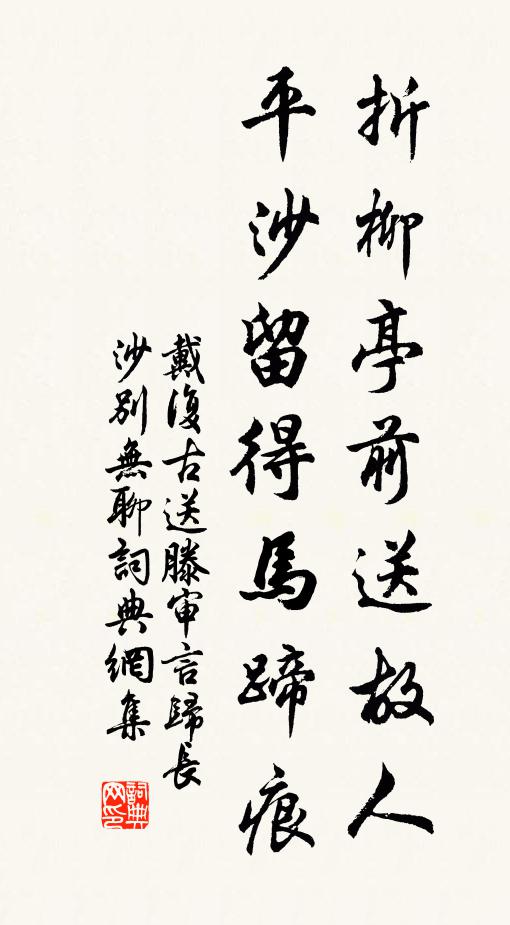 折柳亭前送故人
平沙留得馬蹄痕
戴復古送滕审言歸長
沙別無聊詞典網集
詞典
网印